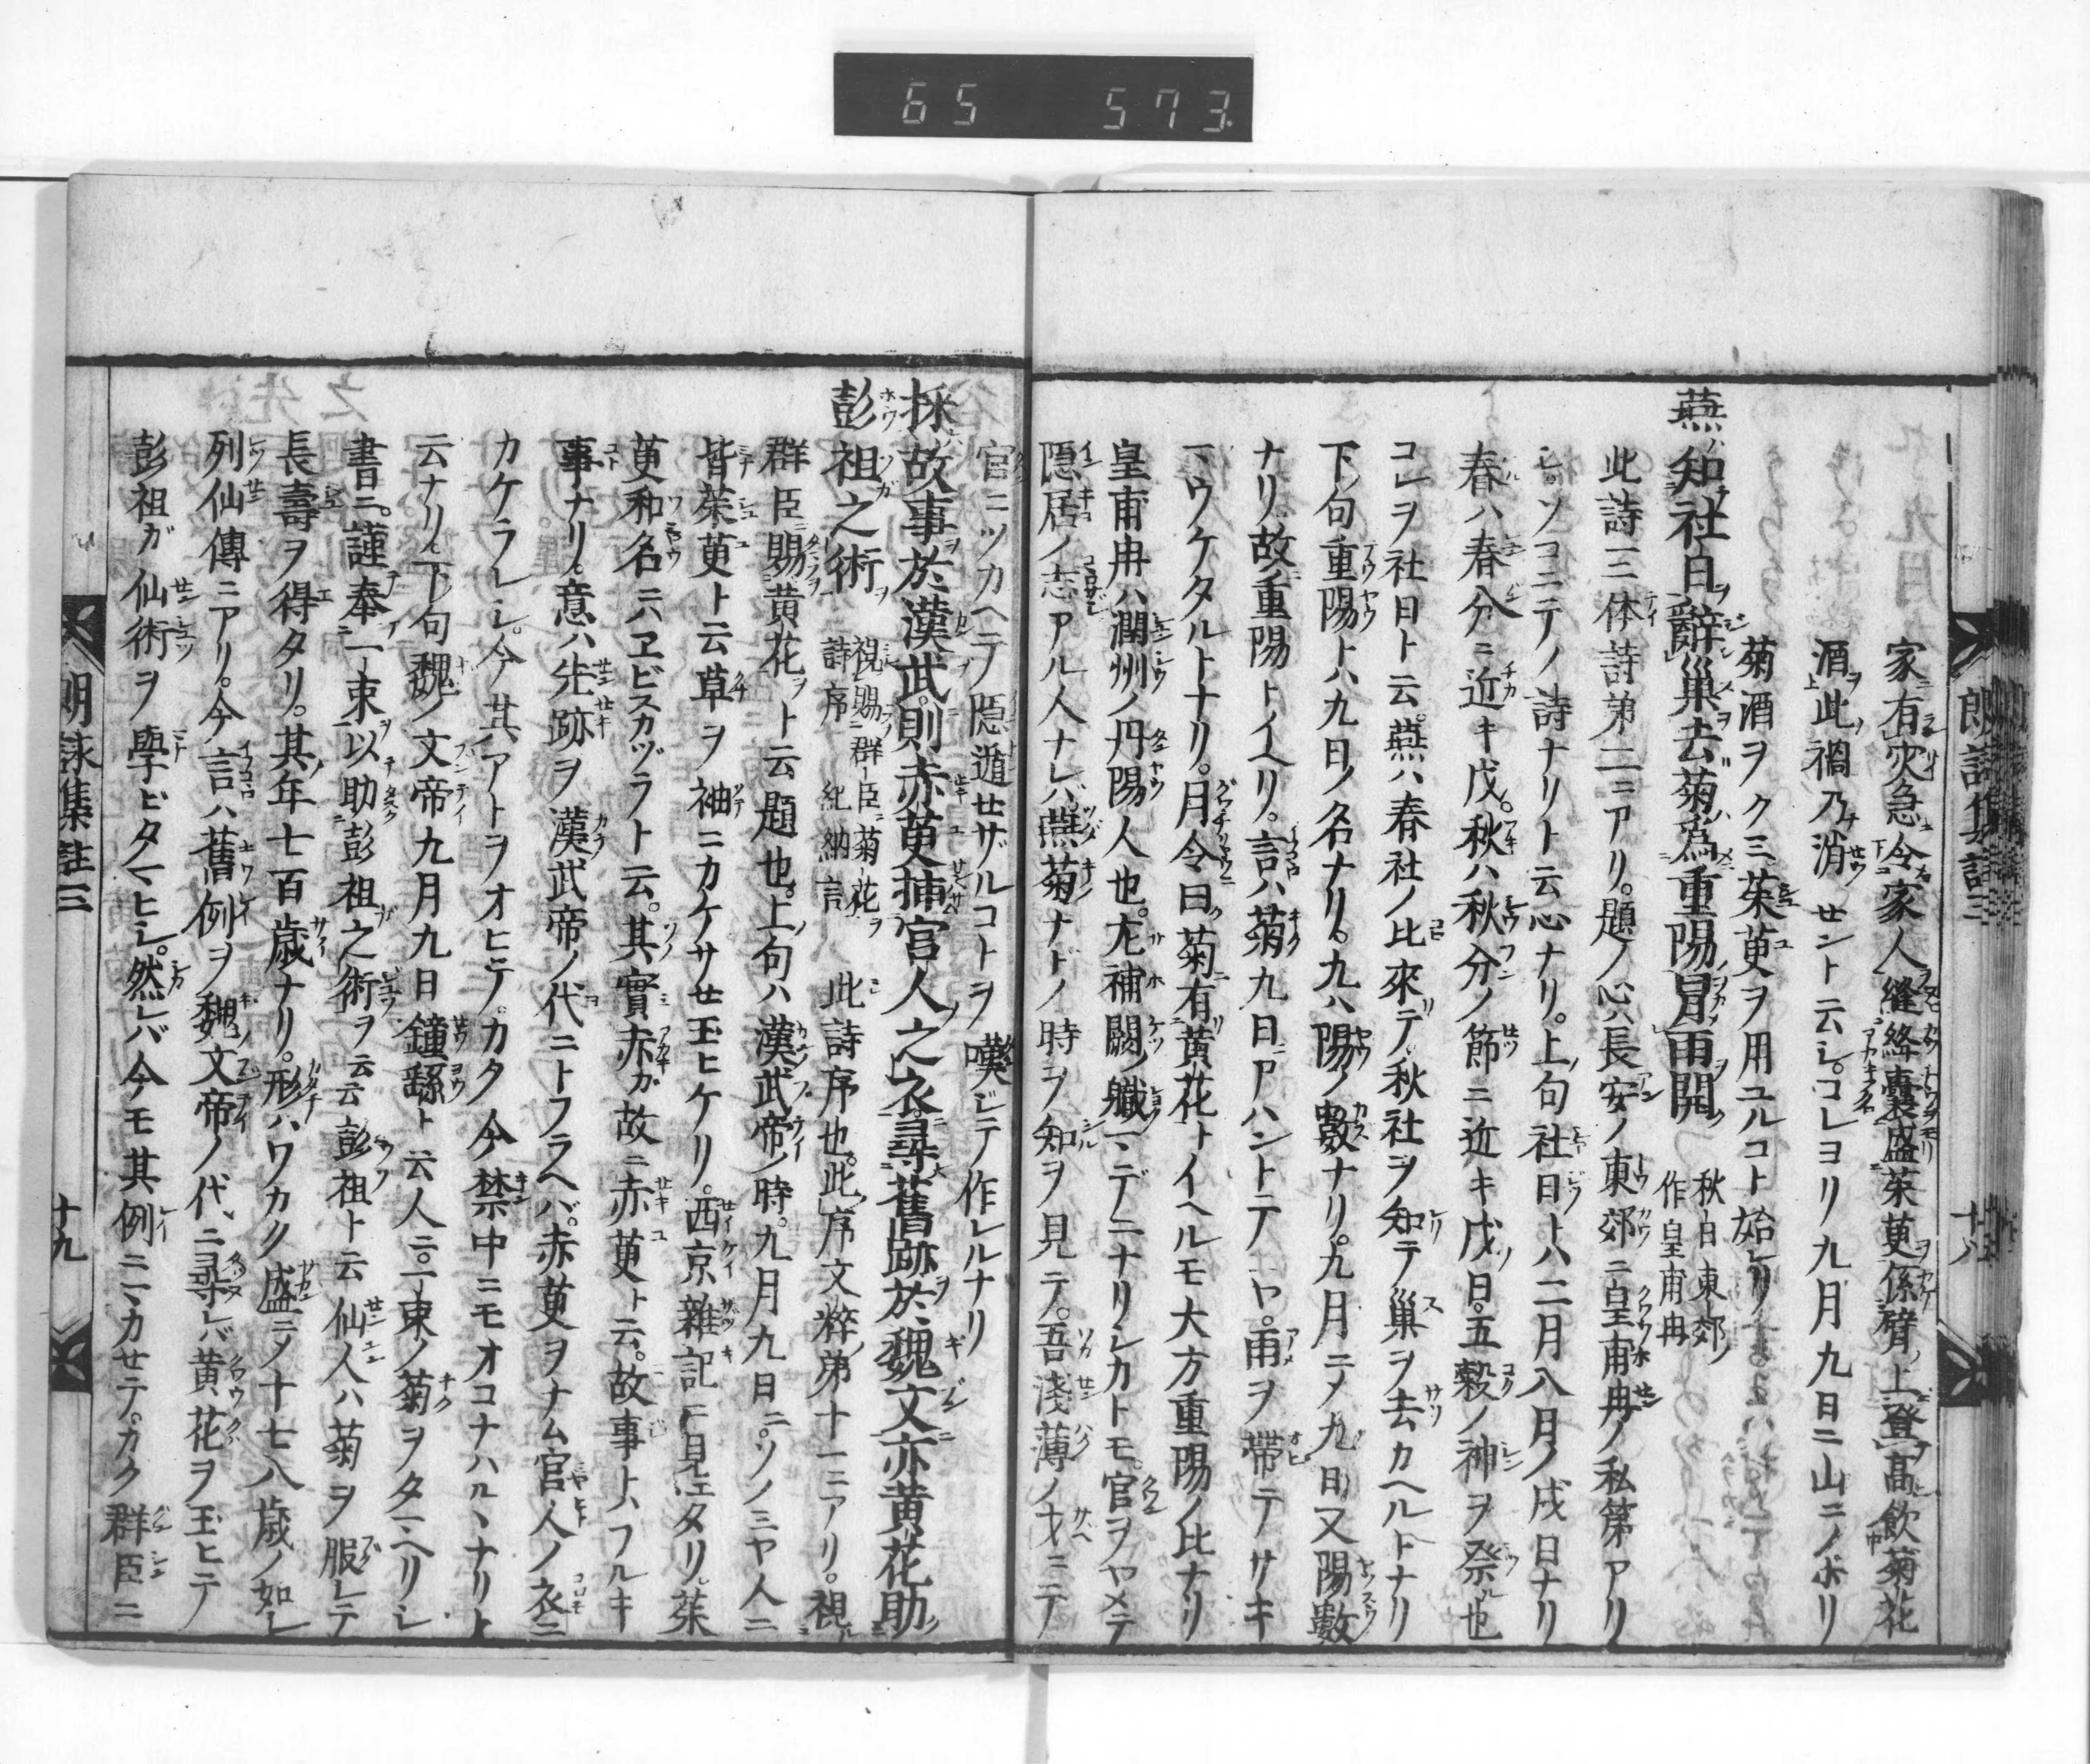 65 573
朗詠集註三
十八
家有災急令家人縫絳囊盛茱萸係臂上登高飲菊花
酒此禍乃消セント云シ。コレヨリ九月九日ニ山ニノボリ
菊酒ヲクミ茱萸ヲ用ユルコト始レリ
燕知社日辭巢去菊爲重陽冒雨開
秋日東郊ノ
作皇甫冉
此詩三体詩第二ニアリ。題ノ心ハ長安ノ東郊ニ皇甫冉ノ私第アリ
シ。ソコニテノ詩ナリト云心ナリ。上句社日トハ二月八月ノ戌日ナリ
春ハ春分ニ近キ戊。秋ハ秋分ノ節ニ近キ戊ノ日。五穀ノ神ヲ祭ル也
コレヲ社日ト云。燕ハ春社ノ比來リテ。秋社ヲ知テ巢ヲ去カヘルトナリ
下句重陽トハ九日ノ名ナリ。九ハ陽ノ數ナリ。九月ニメ九日又陽數
ナリ。故ニ重陽トイヘリ。言ハ菊九日ニアハントテハヤ。雨ヲ帶テサキ
マウケタルトナリ。月令曰菊有黄花トイヘルモ大方重陽ノ比ナリ
皇甫冉ハ潤州ノ丹陽人也。左補闕ノ職マデニナリシカトモ。官ヲヤメテ
隠居ノ志アル人ナレバ。燕菊ナドノ時ヲ知ヲ見テ。吾淺薄ノ才ニテ
官ニツカヘテ隠遁セザルコトヲ嘆ジテ作レルナリ
採故事於漢武則赤萸挿官人之衣尋舊跡於魏文亦黄花助
彭祖之術
視賜群臣菊花
詩序 紀納言
此詩序也。此序文粹第十一ニアリ。視
群臣賜黄花ト云題也。上句ハ漢武帝ノ時。九月九日ニ。ソノミヤ人ニ
皆茱萸ト云草ヲ袖ニカケサセ玉ヒケリ。西京雜記ニ見エタリ。茱
萸和名ニハヱビスカヅラト云。其實赤キガ故ニ赤萸ト云。故事トハフルキ
事ナリ。意ハ先跡ヲ漢武帝ノ代ニトフラヘバ。赤萸ヲナム官人ノ衣ニ
カケラレシ。今其アトヲオヒテ。カタ今禁中ニモオコナハルヽナリト
云ナリ。下句魏ノ文帝九月九日鐘繇ト云人ニ。一束ノ菊ヲタマヘリシ
書ニ。謹奉一束以助彭祖之術ヲ云云彭祖ト云仙人ハ菊ヲ服シテ
長壽ヲ得タリ。其年七百歳ナリ。形ハワカク盛ニメ十七八歳ノ如シ
列仙傳ニアリ。今言ハ舊例ヲ魏文帝ノ代ニ尋レバ黄花ヲ玉ヒテ
彭祖ガ仙術ヲ學ビタマヒシ。然レバ今モ其例ニマカセテ。カク群臣ニ
朗詠集註三
十九